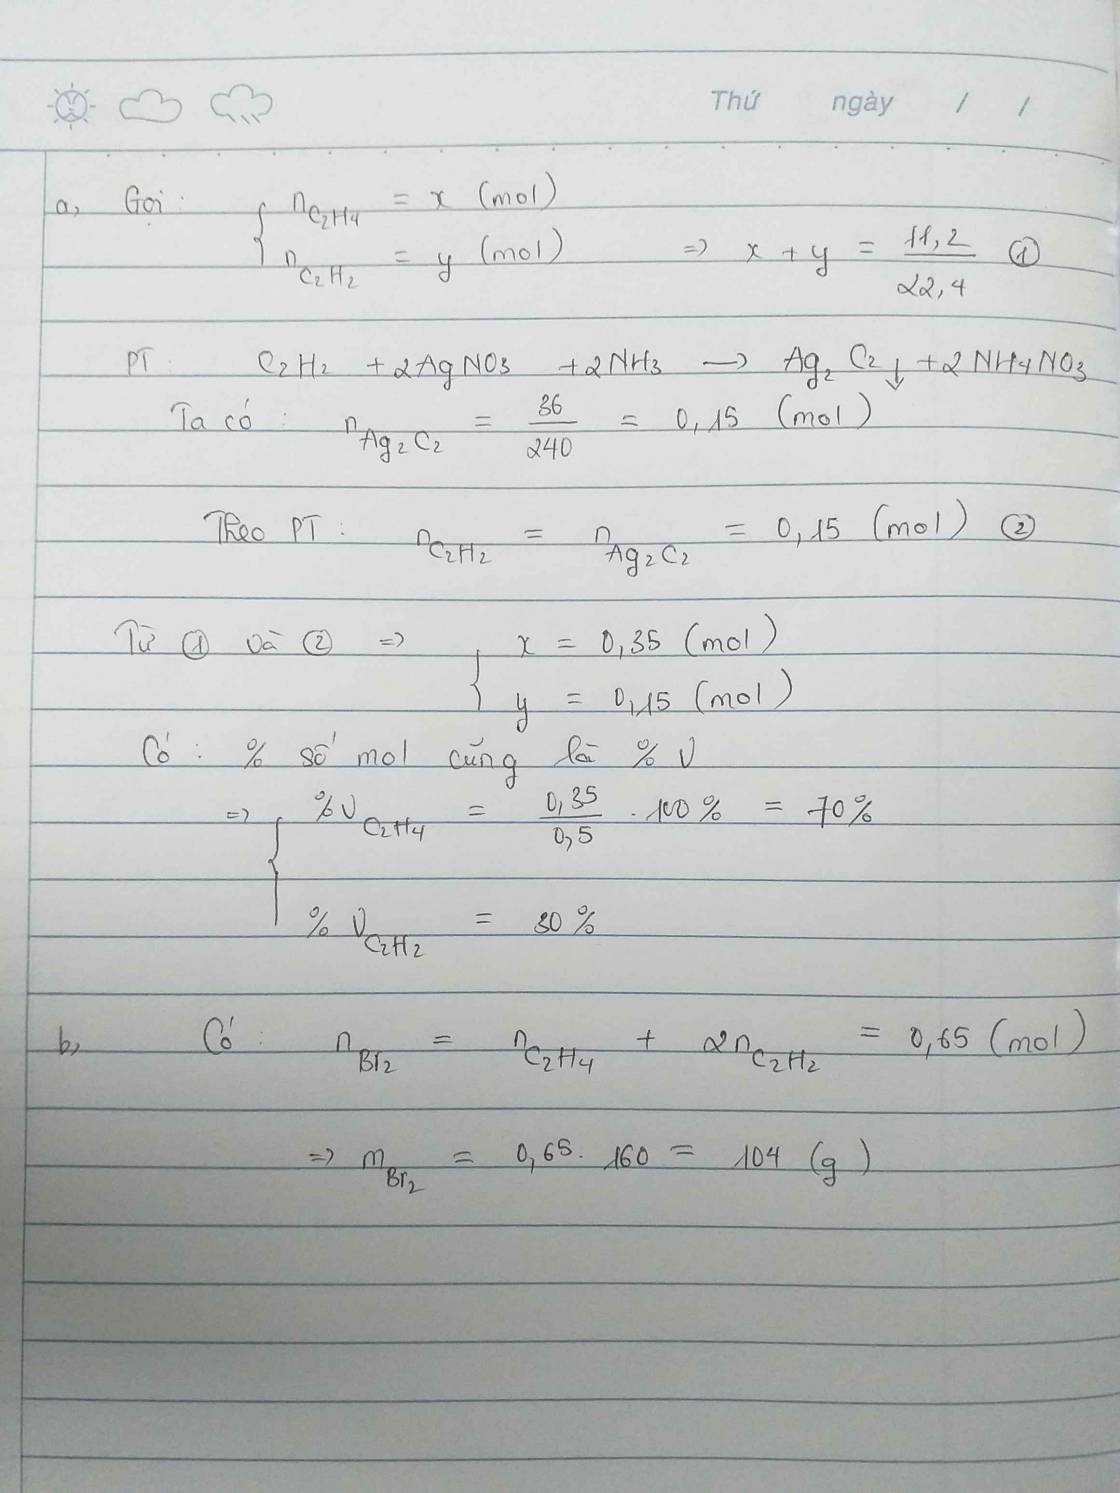 Thứ ngày / /
a, Gọi: n C2H4 = x (mol)
n C2H2 = y (mol) => x + y = 11,2 / 22,4 ①
PT: C2H2 + 2AgNO3 + 2NH3 → Ag2C2↓ + 2NH4NO3
Ta có: n Ag2C2 = 36 / 240 = 0,15 (mol)
Theo PT: n C2H2 = n Ag2C2 = 0,15 (mol) ②
Từ ① và ② => x = 0,35 (mol)
y = 0,15 (mol)
Có: % số mol cũng là % V
=> %V C2H4 = 0,35 / 0,5 . 100% = 70%
%V C2H2 = 30%
b, Có: n Br2 = n C2H4 + 2n C2H2 = 0,65 (mol)
=> m Br2 = 0,65. 160 = 104 (g)